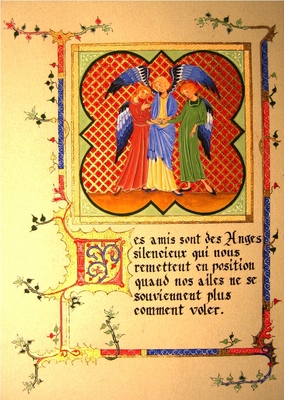 Les amis sont des Anges
silencieux qui nous
remettent en position
quand nos ailes ne se
souviennent plus
comment voler.